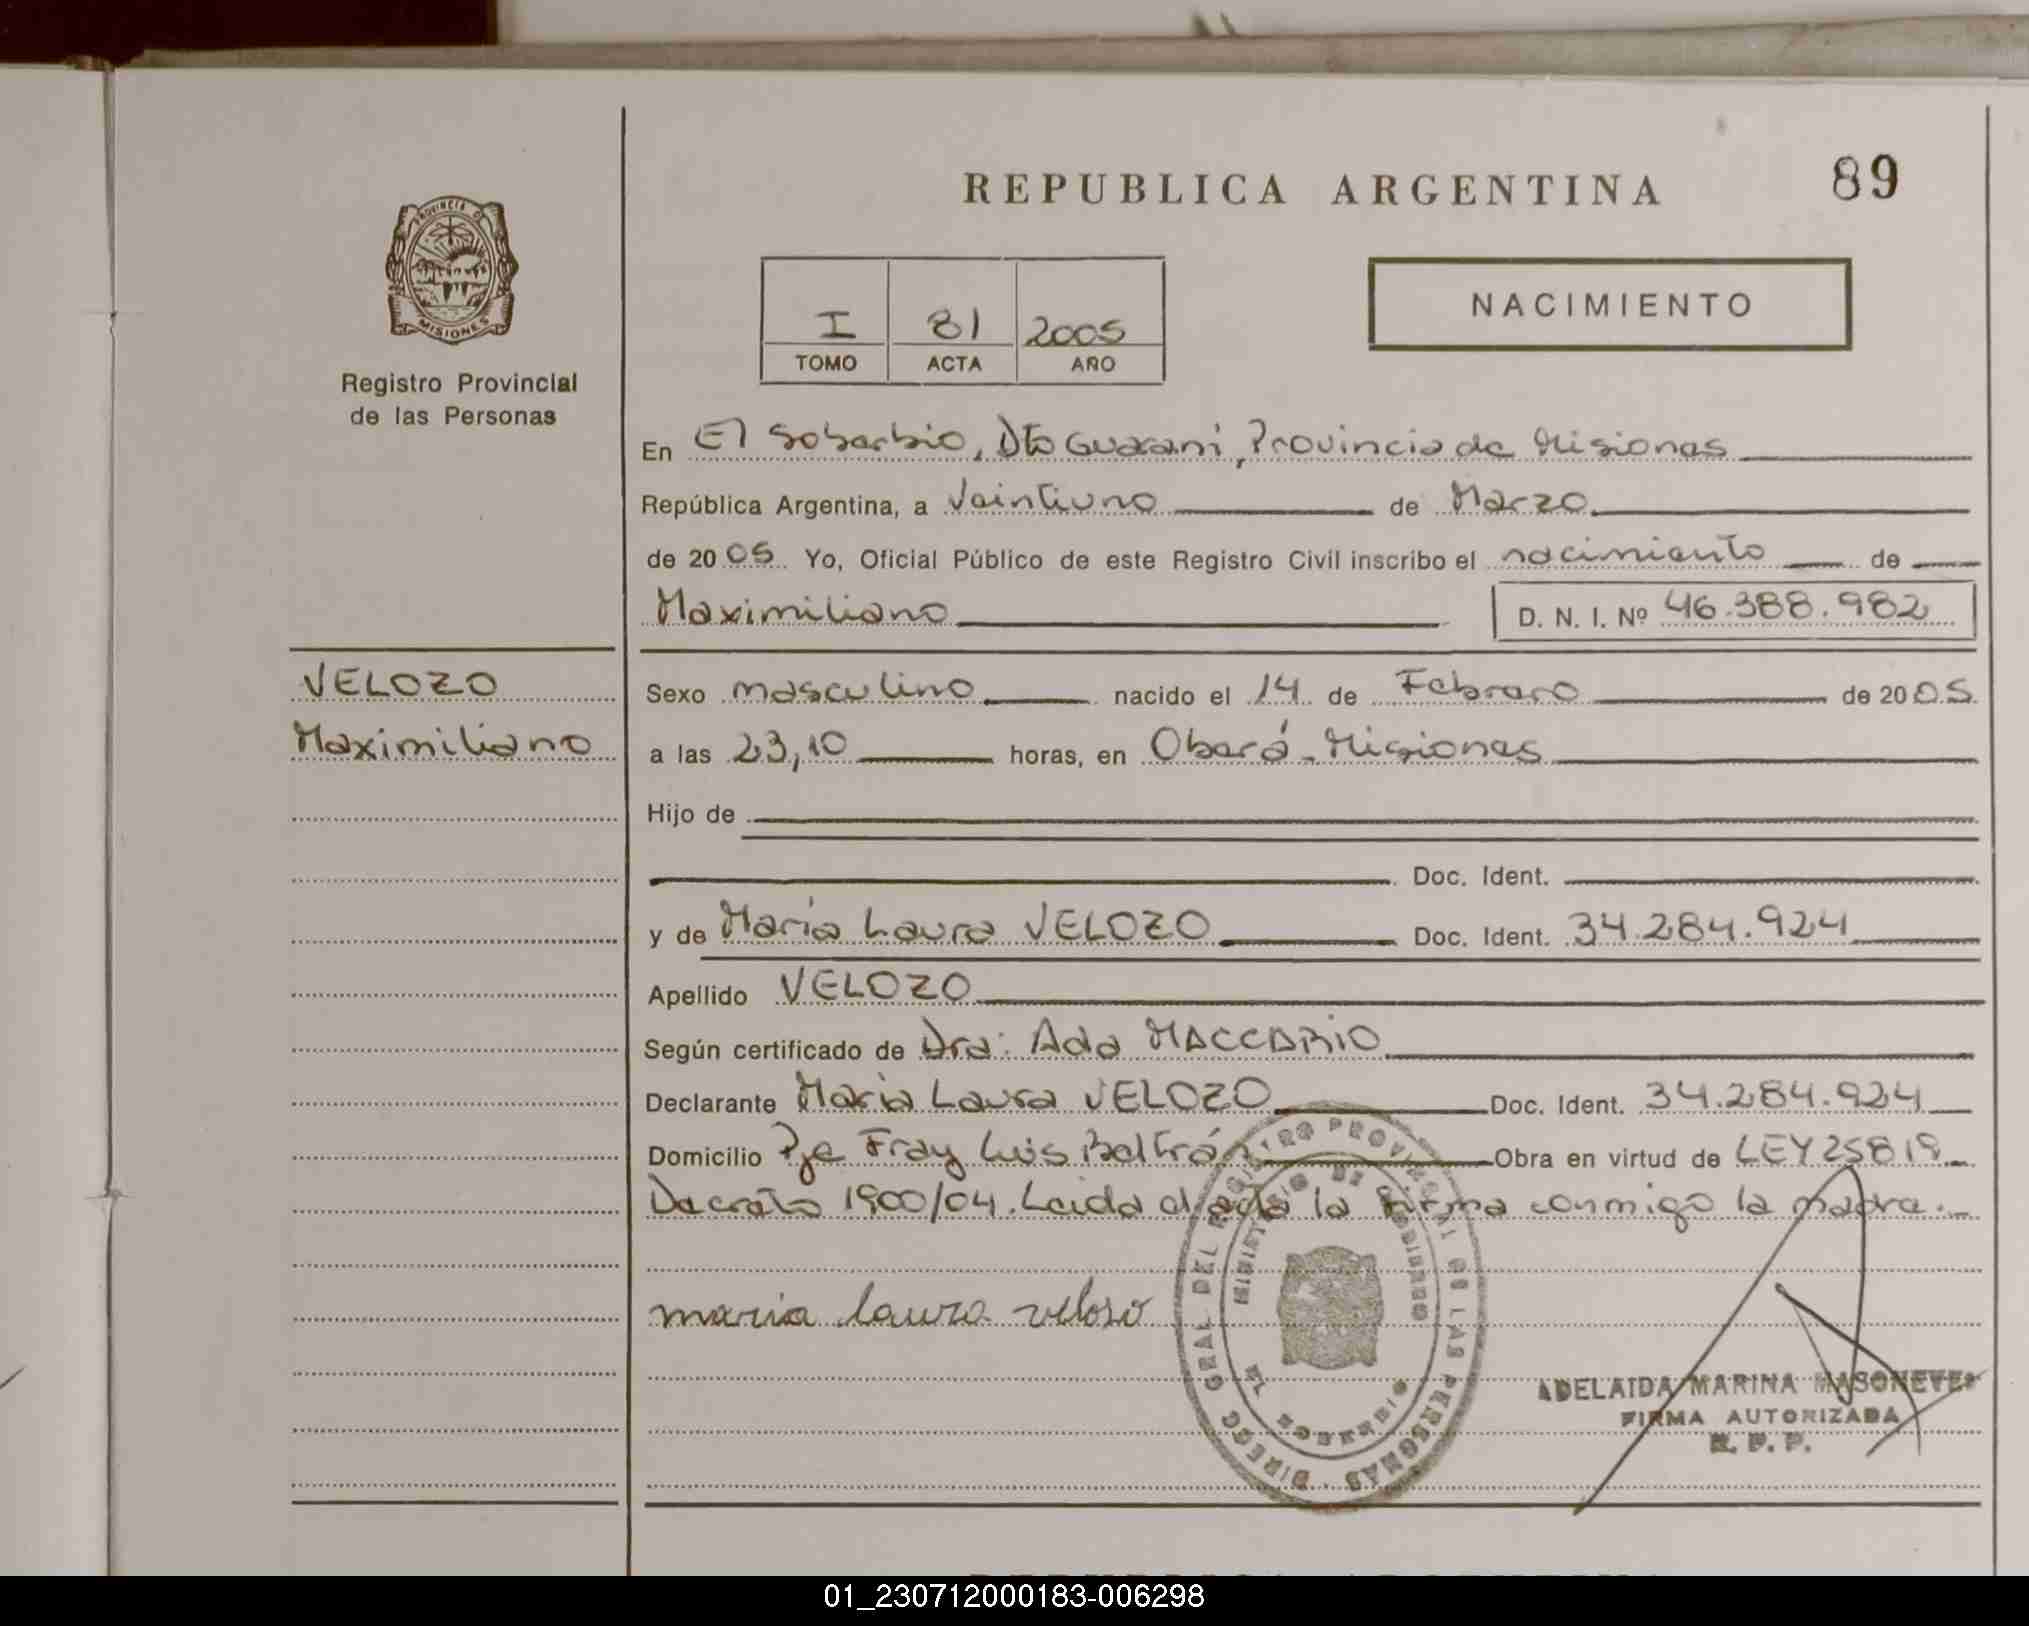 REPUBLICA ARGENTINA
89
PROVINCIA DE
MISIONES
Registro Provincial
de las Personas
I 81 2005
TOMO ACTA AÑO
NACIMIENTO
En El Soberbio, Dto Guaraní, Provincia de Misiones
República Argentina, a Veintiuno de Marzo
de 2005 Yo, Oficial Público de este Registro Civil inscribo el nacimiento de
Maximiliano D. N. I. Nº 46.388.982
VELOZO
Maximiliano
Sexo masculino nacido el 14 de Febrero de 2005
a las 23,10 horas, en Oberá - Misiones
Hijo de
Doc. Ident.
y de María Laura VELOZO Doc. Ident. 34.284.924
Apellido VELOZO
Según certificado de Dra: Ada MACCARIO
Declarante María Laura VELOZO Doc. Ident. 34.284.924
Domicilio Pje Fray Luis Beltrán Obra en virtud de LEY 25819
Decreto 1900/04. Leida el acta la firma conmigo la madre.
maria laura velozo
DIRECC GRAL DEL REGISTRO PROVINCIAL DE LAS PERSONAS
MINISTERIO DE GOBIERNO
ADELAIDA MARINA
FIRMA AUTORIZADA
R. P. P.
01_230712000183-006298